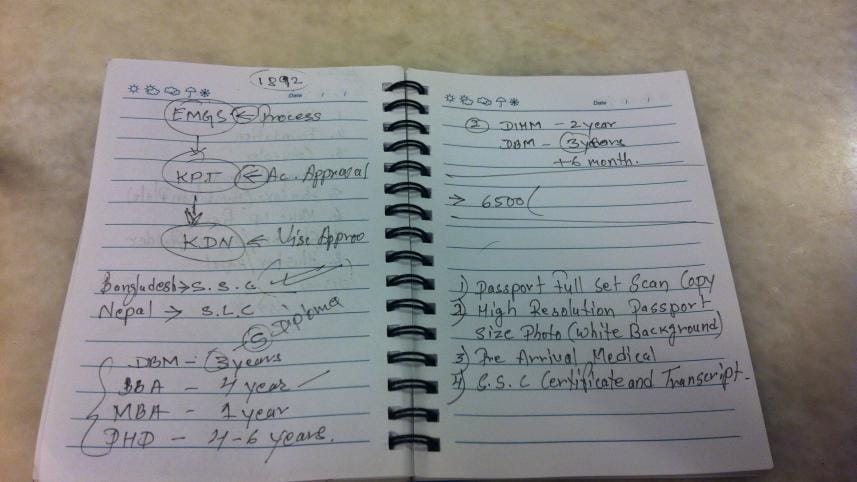 1892
Date / /
EMGS ← Process
↓
KPT ← Ac. Appraral
↓
KDN ← Vise Approo
Bangladesh → S.S.C
Nepal → S.L.C
5 Diploma
DBM - 3 years
BBA - 4 year
MBA - 1 year
PHD - 4-6 years.
Date / /
2 DIHM - 2 year
DBM - 3 years
+ 6 month.
→ 6500(
1) Passport Full Set Scan Copy
2) High Resolution Passport
Size Photo (White Background)
3) Pre Arrival Medical
4) S.S.C Certificate and Transcript.